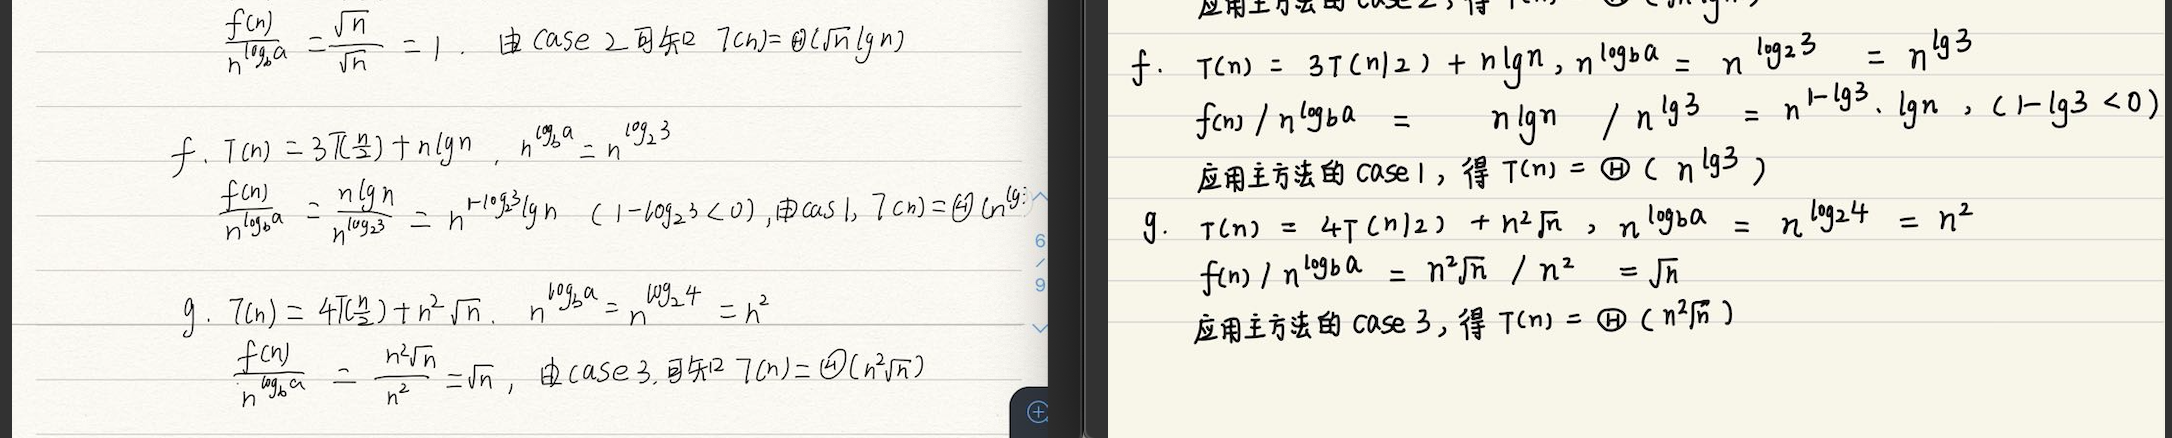 f(n)/n^log_b a = √n/√n = 1. 由 case 2 可知 T(n)=Θ(√n lgn)
f. T(n) = 3T(n/2) + nlgn, n^log_b a = n^log_2 3
f(n)/n^log_b a = nlgn/n^log_2 3 = n^1-log_2 3 lgn (1-log_2 3 < 0), 由cas1, T(n) = Θ(n^lg3
g. T(n) = 4T(n/2) + n²√n. n^log_b a = n^log_2 4 = n²
f(n)/n^log_b a = n²√n/n² = √n, 由 case 3. 可知 T(n) = Θ(n²√n)
6
/
9
应用主方法的 case 2, 得
f. T(n) = 3T(n/2) + nlgn, n^log_b a = n^log_2 3 = n^lg3
f(n) / n^log_b a = nlgn / n^lg3 = n^1-lg3 · lgn, (1-lg3 < 0)
应用主方法的 case 1, 得 T(n) = Θ(n^lg3)
g. T(n) = 4T(n/2) + n²√n, n^log_b a = n^log_2 4 = n²
f(n) / n^log_b a = n²√n / n² = √n
应用主方法的 case 3, 得 T(n) = Θ(n²√n)